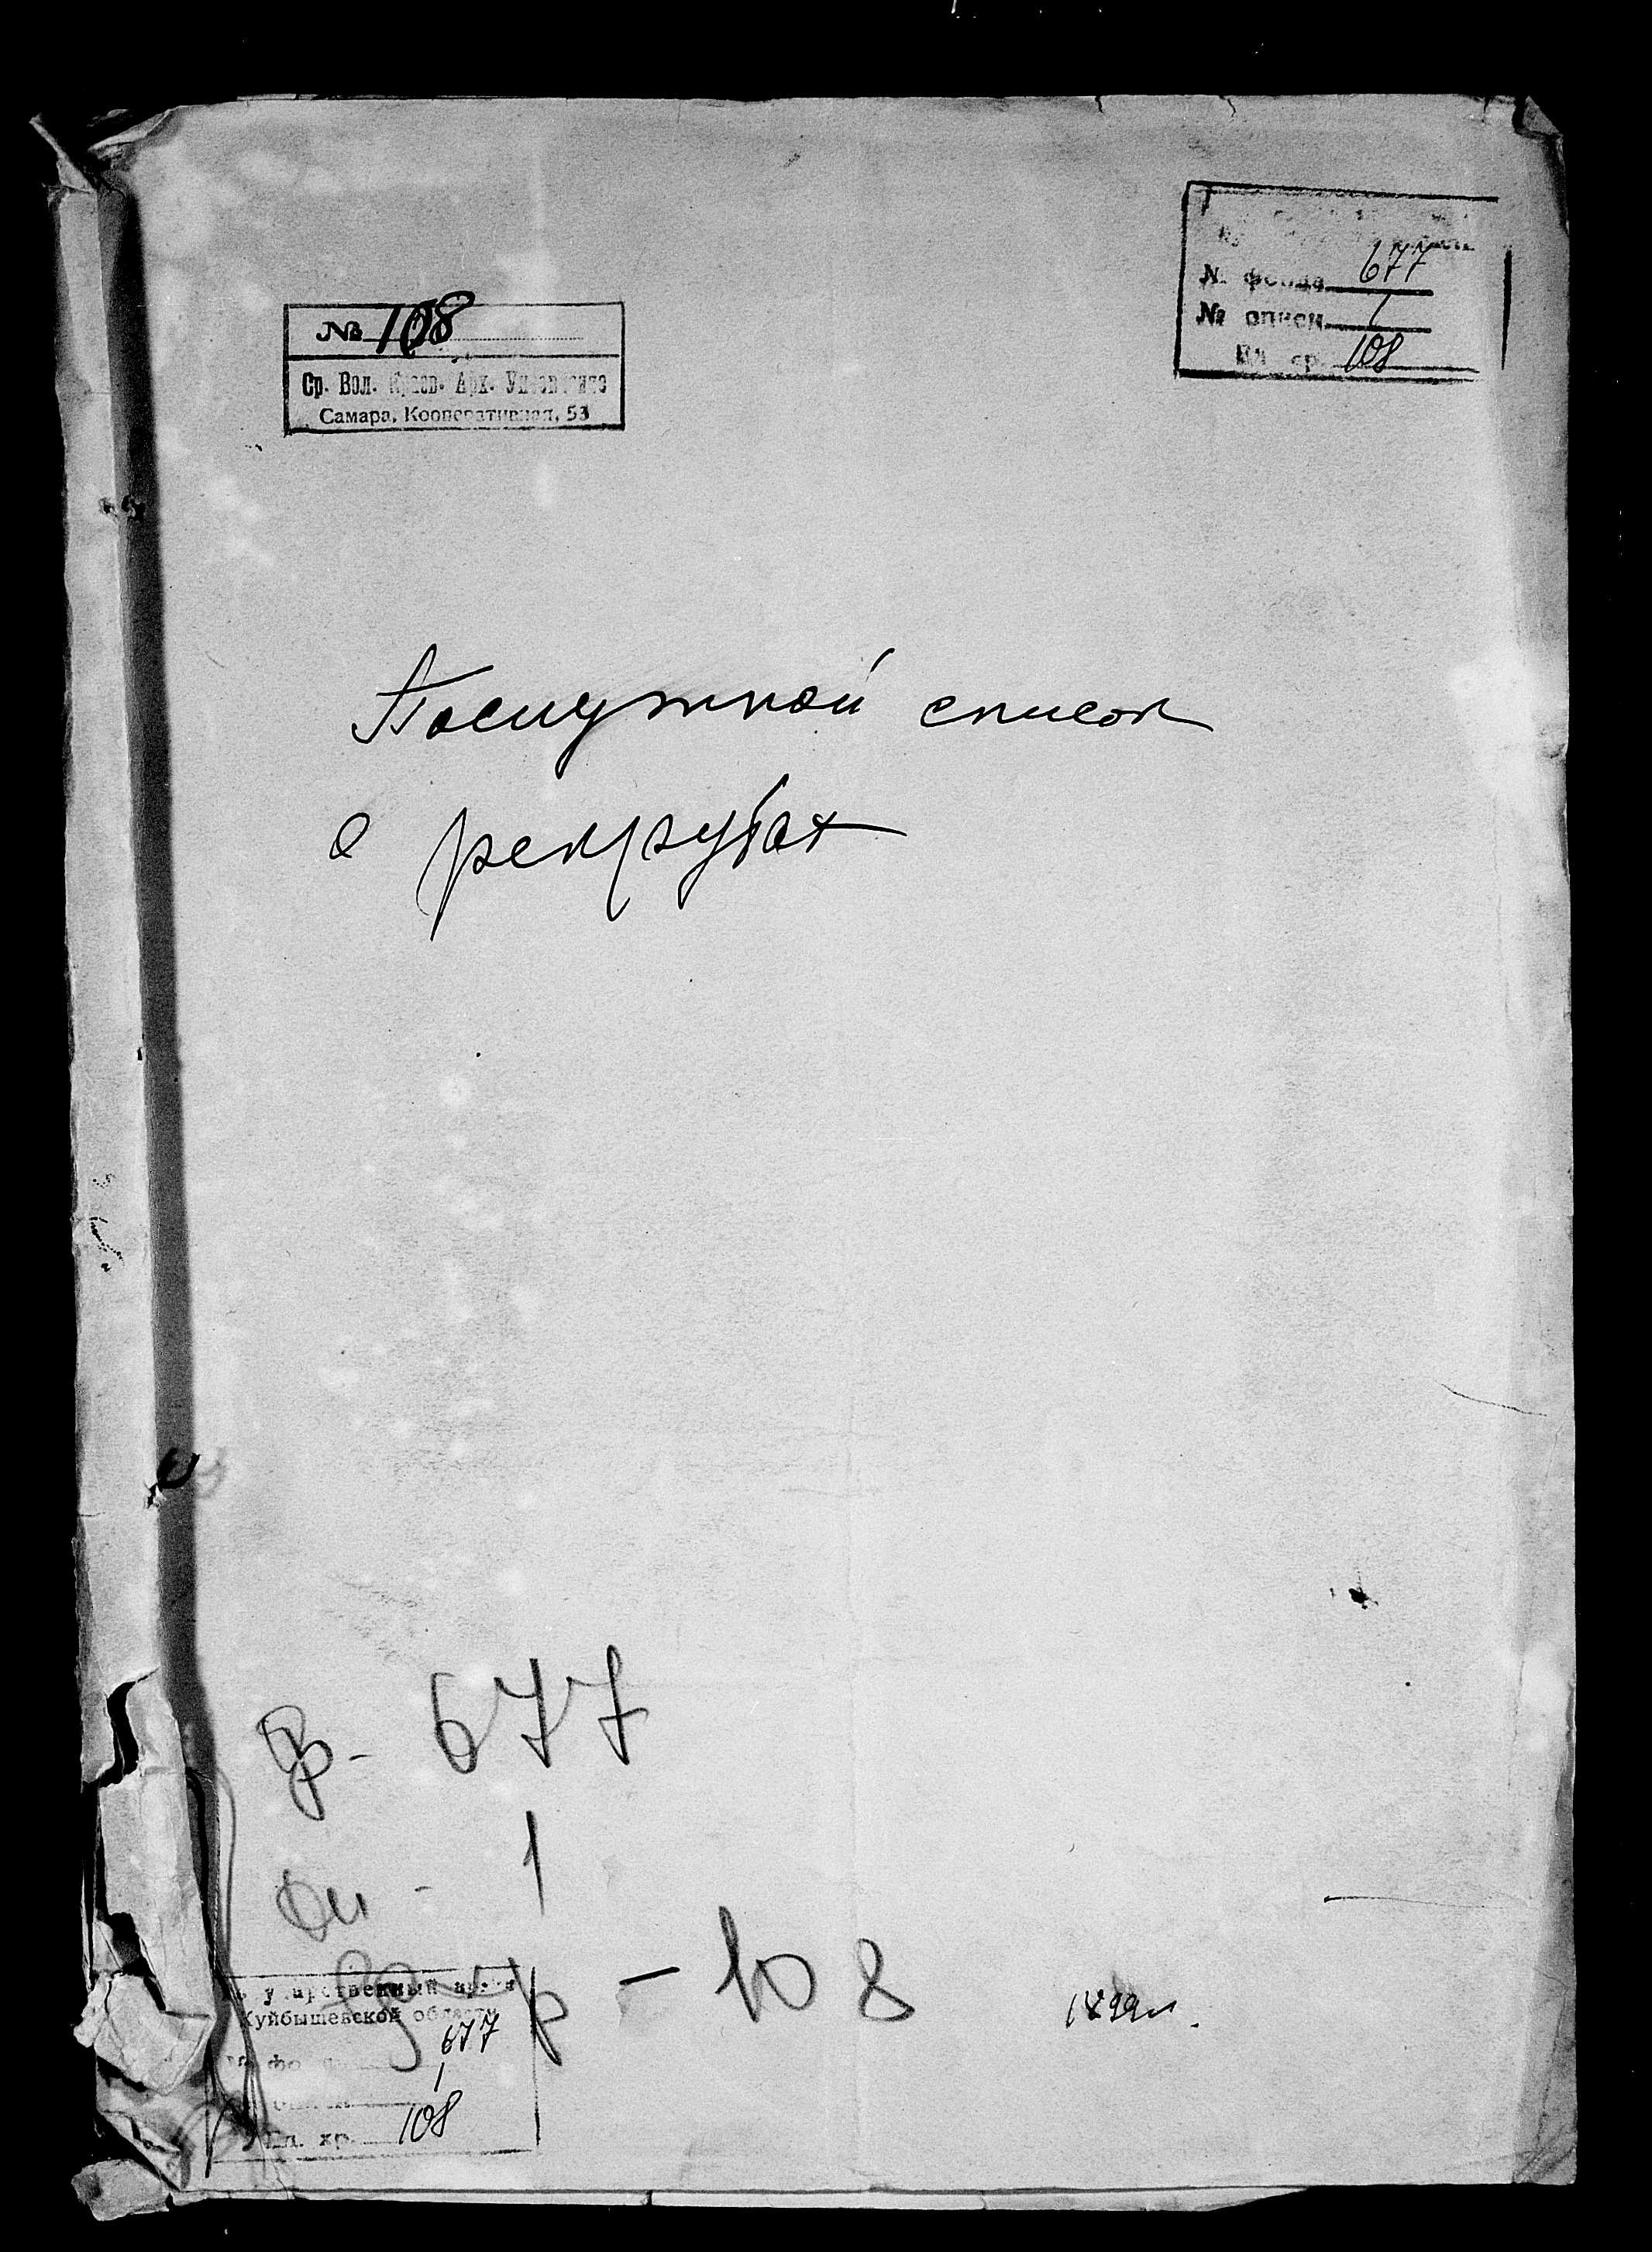 № 108
Ср. Вол. Краев. Арх. Управление
Самара, Кооперативная, 53
№ фонда 677
№ описи 1
Ед. хр. 108
Послужной список
о рекрутах
ф. - 677
оп - 1
ед хр - 108
Государственный архив
Куйбышевской области
№ фонда 677
№ описи 1
Ед. хр. 108